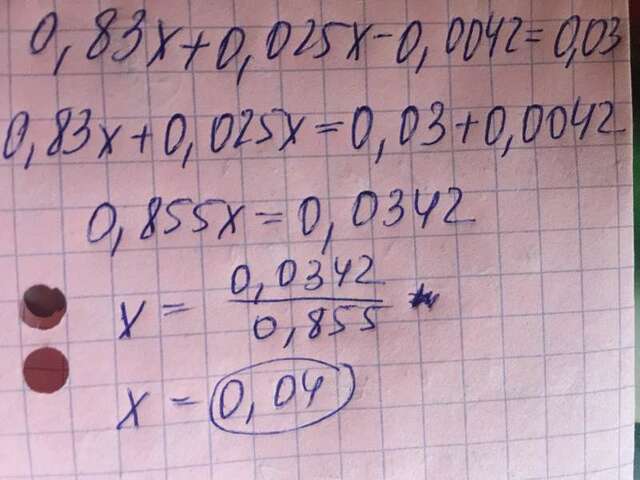 0,83x+0,025x-0,0042=0,03
0,83x+0,025x=0,03+0,0042
0,855x=0,0342
x = 0,0342/0,855
x = 0,04